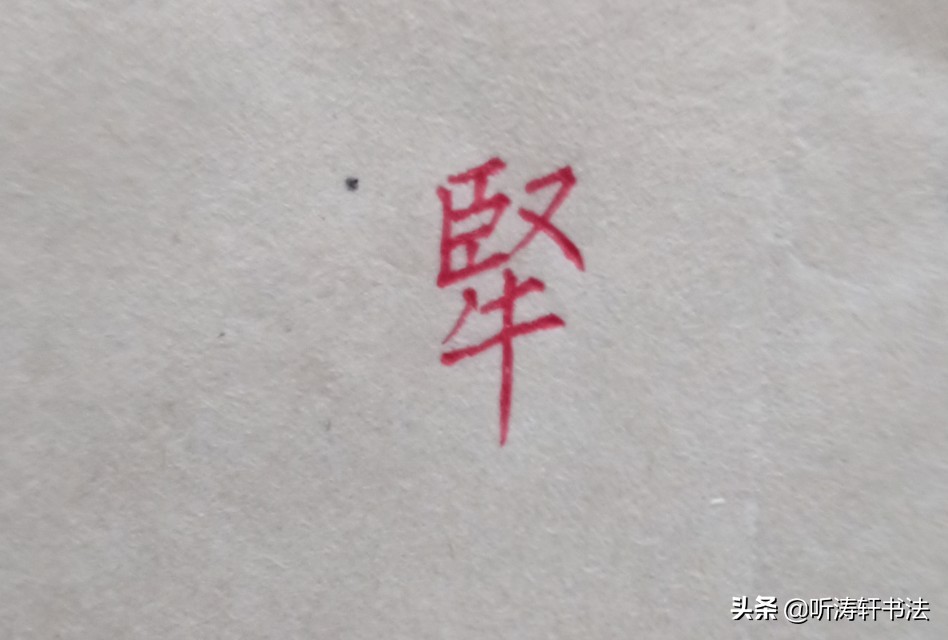 堅
头条 @听涛轩书法